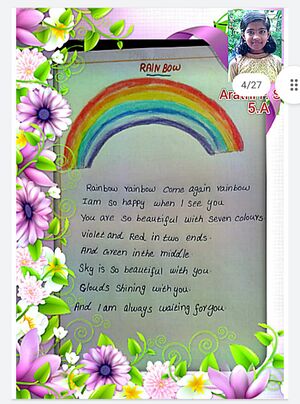 RAINBOW
4/27
5.A
Rainbow rainbow come again rainbow
I am so happy when I see you
You are so beautiful with seven colours
violet and Red in two ends.
And Green in the middle.
Sky is so beautiful with you.
Glouds Shining with you.
And I am always waiting for you.